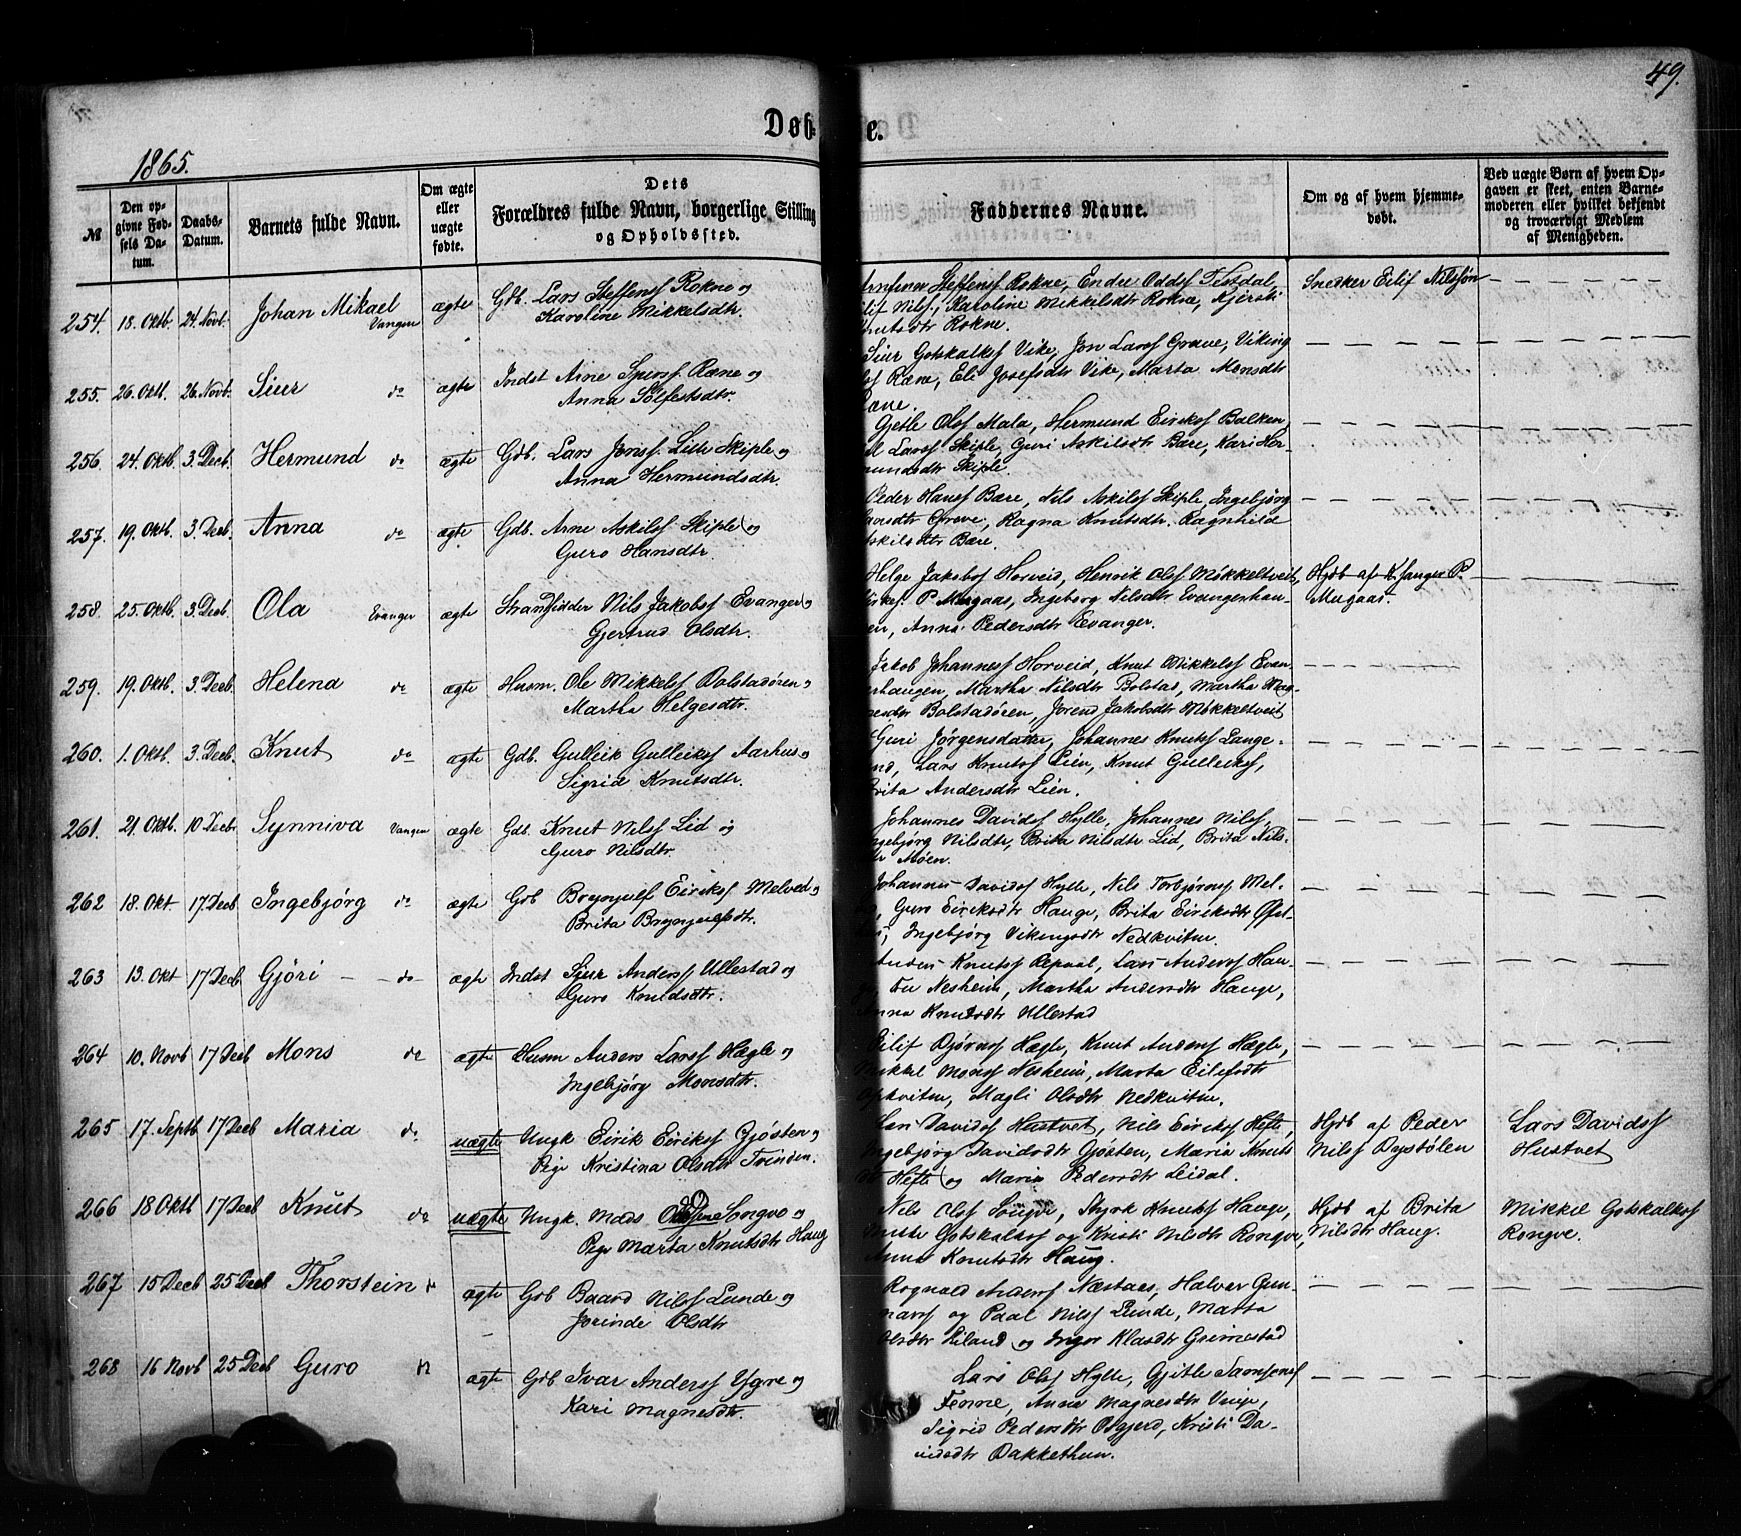 49.
Døbte.
1865.
№
Den opgivne Fødsels Datum.
Daabs-Datum.
Barnets fulde Navn.
Om ægte eller uægte fødte.
Dets Forældres fulde Navn, borgerlige Stilling og Opholdssted.
Faddernes Navne.
Om og af hvem hjemmedøbt.
Ved uægte Børn af hvem Opgaven er skeet, enten Barnemoderen eller hvilket bekjendt og troværdigt Medlem af Menigheden.
254. 18. Oktb. 24. Novb. Johan Mikael Vangen ægte Gdb. Lars Steffenss Rokne og
Karoline Mikkelsdtr.
Steffenss Rokne, Endre Odds Tistdal,
Nils, Karoline Mikkelsdtr Rokne, Kjersti
Rokne.
Snedker Eilif Nilssøn
255. 26. Oktb. 26. Novb. Siur do ægte Indst Arne Sjurss. Ræne og
Anna Sølfestsdtr.
Siur Gotskalks Vike, Jon Larss Græve, Viking
Ræne, Eli Josefsdtr Vike, Marta Monsdtr
256. 24. Oktb. 3. Decb. Hermund do ægte Gdb. Lars Jonss. Lille Skiple og
Anna Hermundsdtr.
Getle Olss Mala, Hermund Eirikss Balken,
Larss Skiple, Guri Askilsdtr Bære, Kari Her-
Skiple.
257. 19. Oktb. 3. Decb. Anna do ægte Gdb. Arne Askilss Skiple og
Guro Hansdtr.
Peder Hanss Bære, Nils Askilss Skiple, Ingebjørg
Grove, Ragna Knutsdtr. Ragnhild
Bære.
258. 25. Oktb. 3. Decb. Ola Evanger ægte Strandsidder Nils Jakobss Evanger og
Gjertrud Olsdtr.
Helge Jakobss Horveid, Henrik Olss Mökkeltveit,
P. Mugaas, Ingeborg Nilsdtr Evangerhau-
en, Anna Pedersdtr Evanger.
Hjdb af K. Sanger P.
Mugaas.
259. 19. Oktb. 3. Decb. Helena do ægte Husm. Ole Mikkelss Bolstadören og
Martha Helgesdtr.
Jakob Johanness Horveid, Knut Mikkelss Evan-
gerhaugen, Martha Nilsdtr Bolstad, Martha Mag-
Bolstadören, Jorend Jakobsdtr Mökkeltveit
260. 1. Oktb. 3. Decb. Knut do ægte Gdb. Gulleik Gulleikss Aarhus og
Sigrid Knutsdtr.
Guri Jörgensdatter, Johannes Knutss Lange-
Lars Knutss Lien, Knut Gulleikss,
Brita Andersdtr Lien.
261. 21. Oktb. 10 Decbr Synniva Vangen ægte Gdb. Knut Nilss Lid og
Guro Nilsdtr.
Johannes Davidss Hylle, Johannes Nilss,
Ingebjörg Nilsdtr, Brita Nilsdtr Lid, Brita Nils-
Möen.
262 18. Okt. 17 Decb Ingebjörg do ægte Gdb Brynjulf Eirikss Melved og
Brita Brynjulfsdtr.
Johannes Davidss Hylle, Nils Torbjörnss Mel-
Guro Eiriksdtr Hauge, Brita Eiriksdtr
Ingebjörg Vikingsdtr Nedkvitne.
263 13. Okt 17 Decb Gjöri do ægte Indst Sjur Anderss Ullestad og
Guro Knudsdtr.
Knutss Repaal, Lars Anderss Hau-
Nesheim, Martha Andersdtr Hauge,
Anna Knutsdtr Ullestad
264 10. Novb 17 Decb Mons do ægte Husm Anders Larss Hægle og
Ingebjörg Monsdtr.
Eilif Björnss Hægle, Knut Anderss Hægle,
Mikkel Monss Nesheim, Marta Eilefsdtr
Opkvitne, Magli Olsdtr Nedkvitne.
265 17. Septb 17 Decb Maria do uægte Ungk Eirik Eirikss Gjösten og
Pige Kristina Olsdtr Tvinden.
Lars Davidss Hustvet, Nils Eirikss Hefte,
Ingebjörg Davidsdtr Gjösten, Maria Knuts
Hefte og Maria Pedersdtr Leidal.
Hjdb af Peder
Nilss Dystölen
Lars Davidss
Hustvet
266 18 Oktb 17 Decb Knut do uægte Ungk. Mads Songve og
Pige Marta Knutsdtr Haug
Nels Olss Songve, Styrk Knutss Hauge,
Gotskalss og Kristi Nilsdtr Rongve,
Anna Knutsdtr Haug.
Hjdb af Brita
Nilsdtr Haug.
Mikkel Gotskalkss
Rongve.
267 15 Decb 25 Decb Thorstein do ægte Gdb Baard Nilss Lunde og
Jorinde Olsdtr
Rognald Anderss Næstaas, Halvor Gun-
narss og Paal Nilss Lunde, Marta
Olsdtr Liland og Inger Klasdtr Grimestad
268 16 Novb 25 Decb Guro do ægte Gdb Ivar Anderss Ygre og
Kari Magnesdtr.
Lars Olss Hylle, Gjitle Samsonss
Fenne, Anna Magnesdtr Vinje,
Sigrid Pedersdtr Bøgjerd, Kristi Da-
vidsdtr Bakkethun.